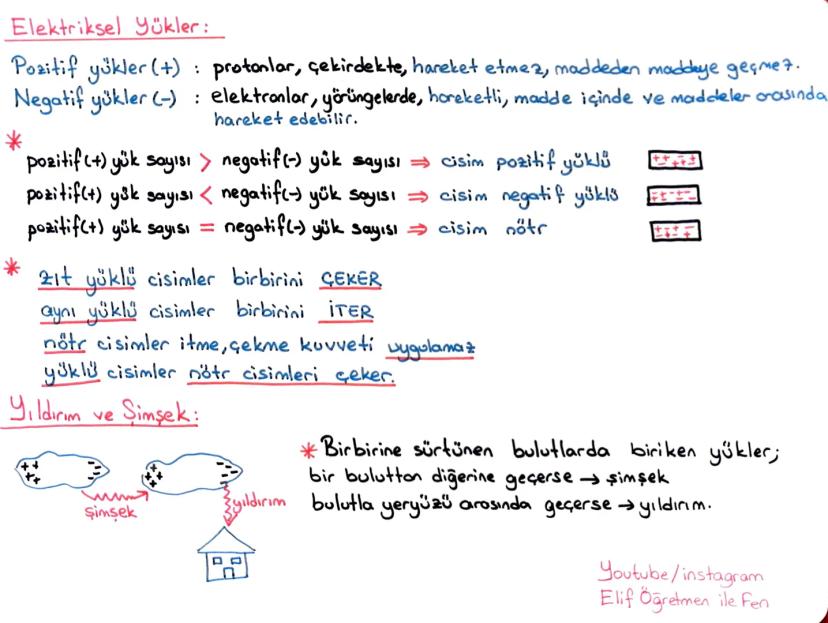 Elektriksel Yükler:
Pozitif yükler (+) : protonlar, çekirdekte, hareket etmez, maddeden maddeye geçmez.
Negatif yükler (-) : elektronlar, yörüngelerde, hareketli, madde içinde ve maddeler arasında
hareket edebilir.
* pozitif(+) yük sayısı > negatif(-) yük sayısı ⇒ cisim pozitif yüklü
pozitif(+) yük sayısı < negatif(-) yük sayısı ⇒ cisim negatif yüklü
pozitif(+) yük sayısı = negatif(-) yük sayısı ⇒ cisim nötr
* zıt yüklü cisimler birbirini ÇEKER
aynı yüklü cisimler birbirini İTER
nötr cisimler itme, çekme kuvveti uygulamaz
yüklü cisimler nötr cisimleri çeker.
Yıldırım ve Şimşek:
şimşek
yıldırım
* Birbirine sürtünen bulutlarda biriken yükler;
bir buluttan diğerine geçerse → şimşek
bulutla yeryüzü arasında geçerse → yıldırım.
Youtube/instagram
Elif Öğretmen ile Fen